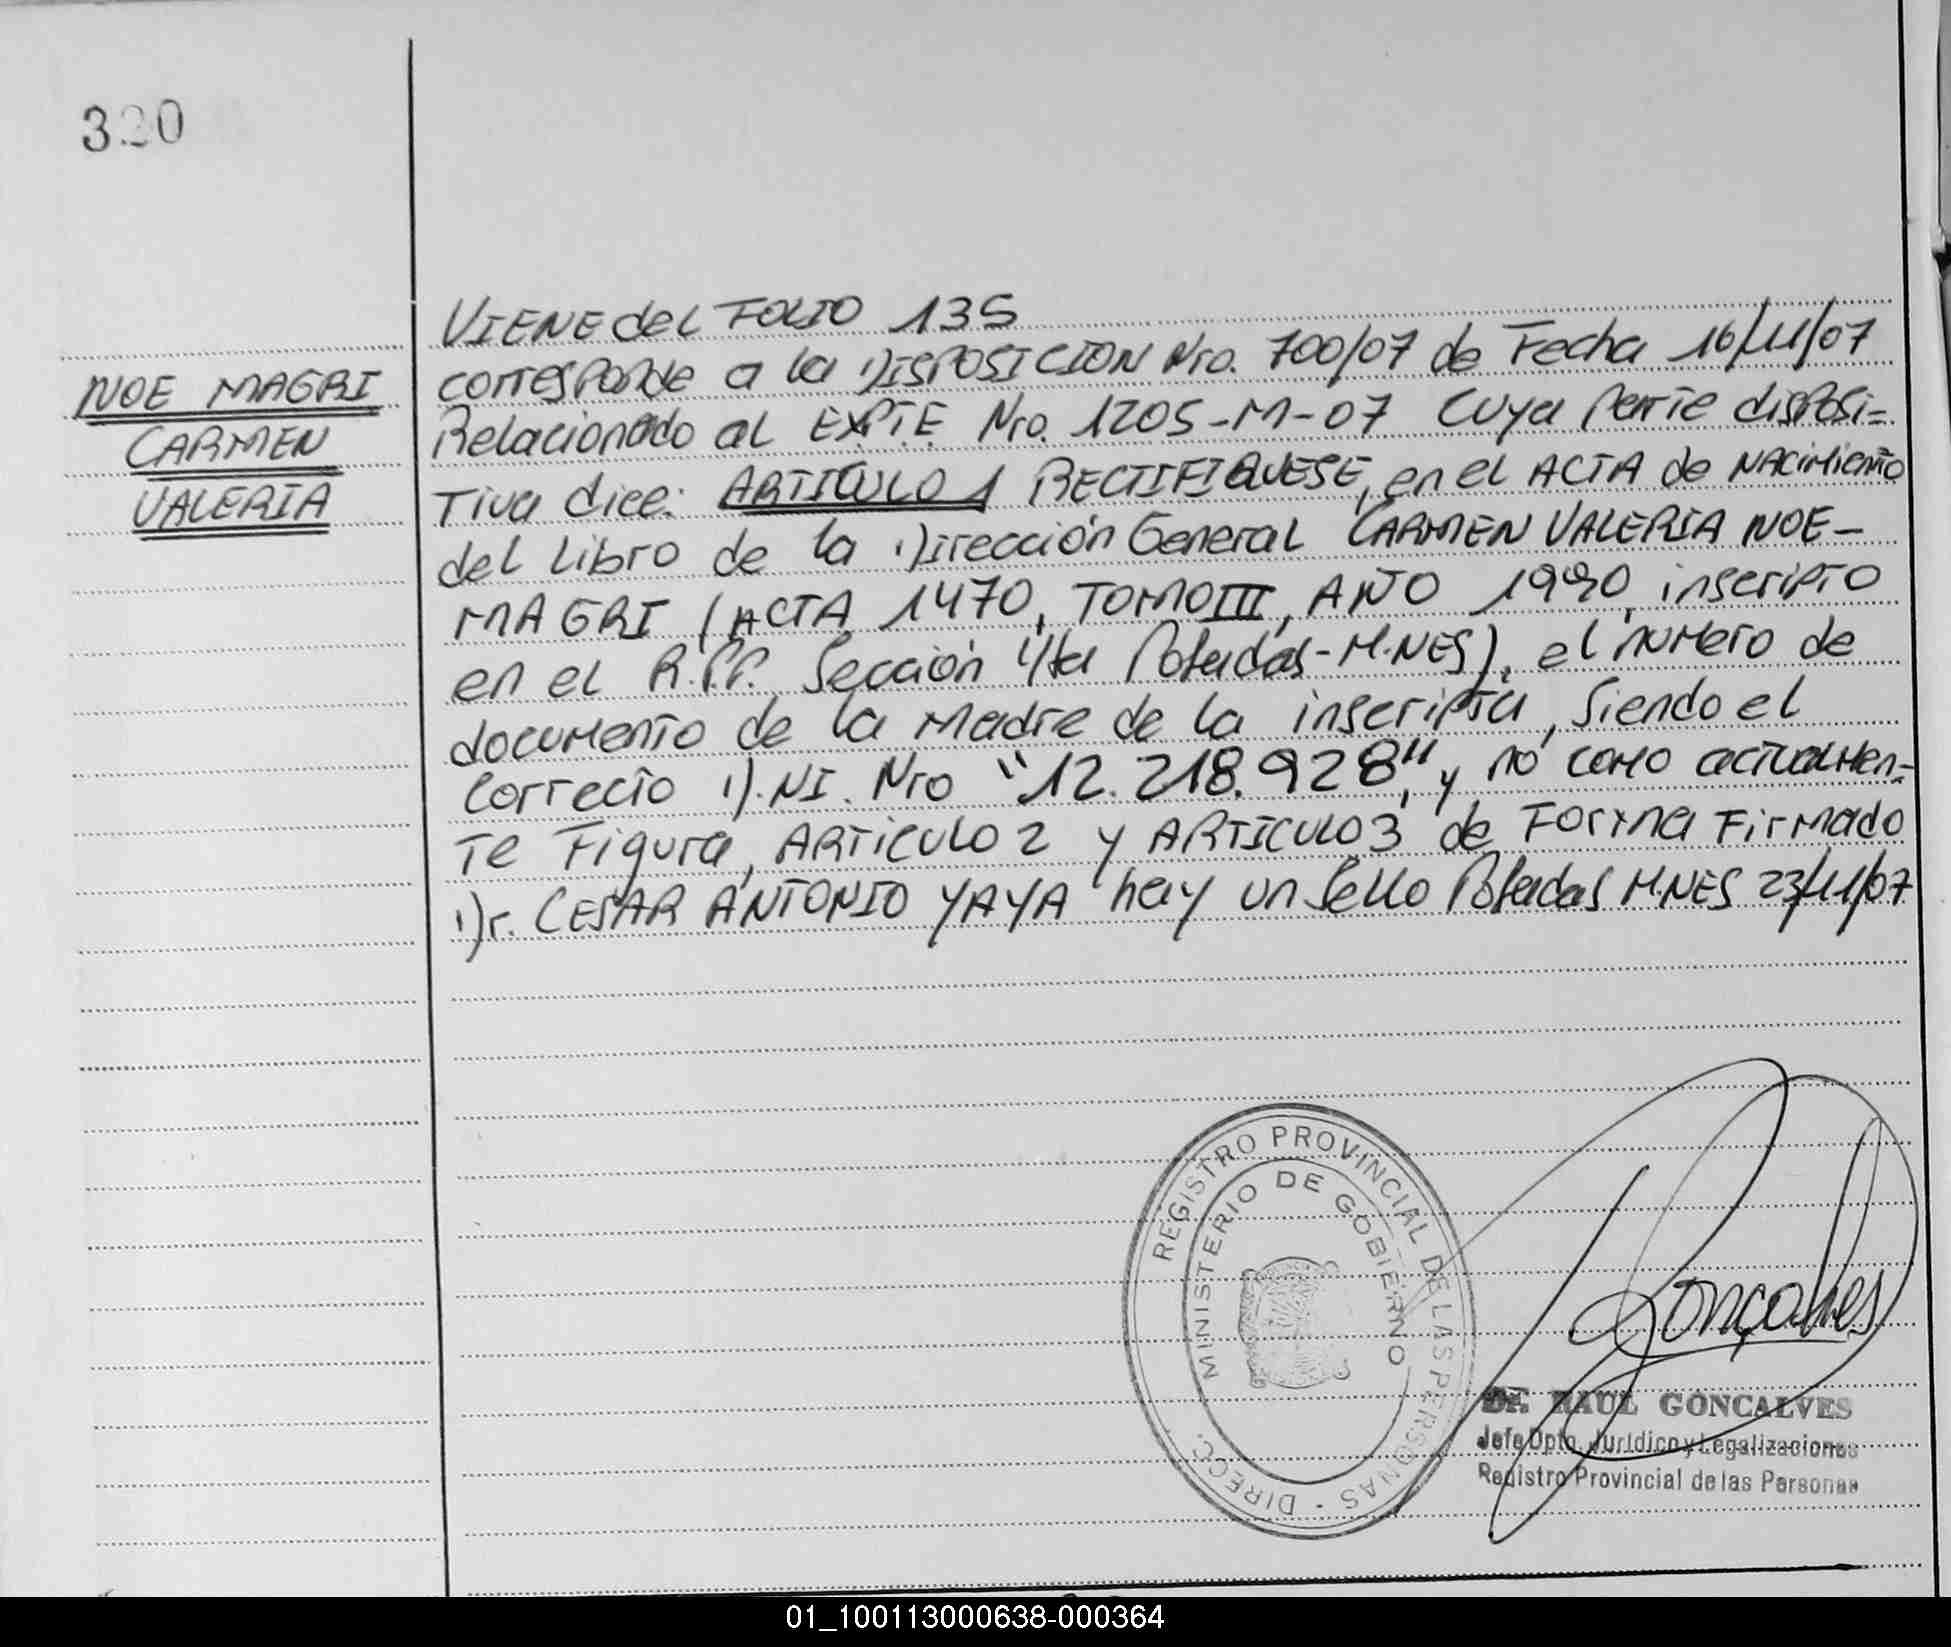 320
NOE MAGRI
CARMEN
VALERIA
VIENE del FOLIO 135
corresponde a la DISPOSICION Nro. 700/07 de Fecha 16/11/07
Relacionado al EXPTE Nro. 1205-M-07 Cuya Parte disposi=
Tiva dice: ARTICULO 1 RECTIFIQUESE, en el ACTA de NACimieNTo
del Libro de la Dirección General CARMEN VALERIA NOE-
MAGRI (ACTA 1470, TOMO III, AÑO 1990, inscripto
en el R.P.P. Sección 4ta Posadas-M.NES), el numero de
documento de la Madre de la inscripta, Siendo el
Correcto D.NI. Nro "12.218.928", y no como actualmen-
Te Figura, ARTiCULO 2 y ARTICULO 3 de Forma Firmado
Dr. CESAR ANTONIO YAYA hay un Sello Posadas M.NES 23/11/07
REGISTRO PROVINCIAL DE LAS PERSONAS - DIRECC.
MINISTERIO DE GOBIERNO
Gonçalves
Dr. RAUL GONCALVES
Jefe Dpto. Jurídico y Legalizaciones
Registro Provincial de las Personas
01_100113000638-000364